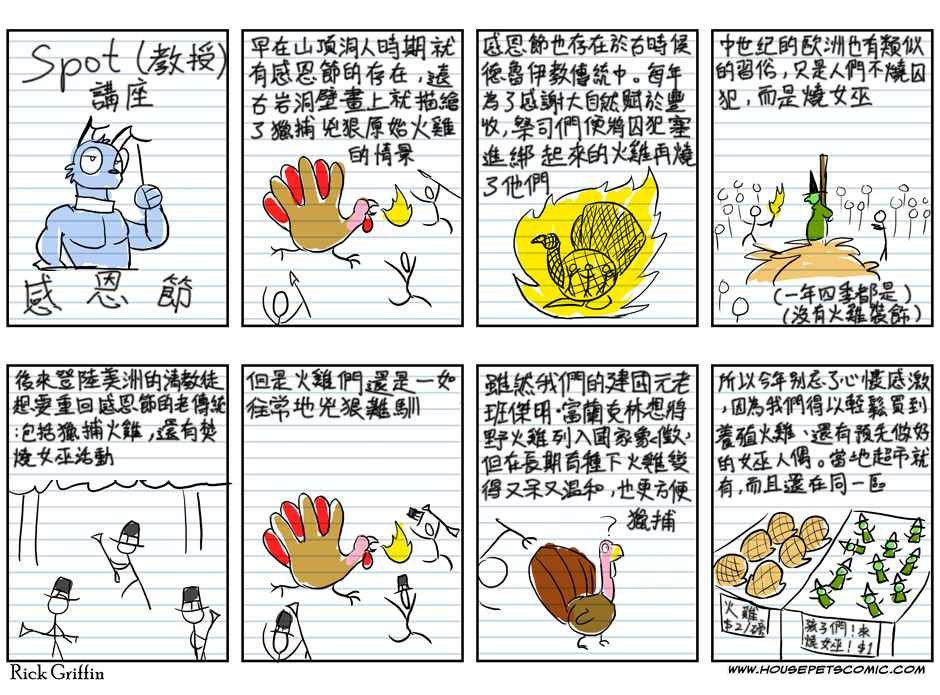 Spot(教授)
講座
感恩節
早在山頂洞人時期就
有感恩節的存在,遠
古岩洞壁畫上就描繪
了獵捕兇狠原始火雞
的情景
感恩節也存在於古時候
德魯伊教傳統中。每年
為了感謝大自然賦於豐
收,祭司們便將囚犯塞
進綁起來的火雞再燒
了他們
中世紀的歐洲也有類似
的習俗,只是人們不燒囚
犯,而是燒女巫
(一年四季都是)
(沒有火雞裝飾)
後來登陸美洲的清教徒
想要重回感恩節的老傳統
:包括獵捕火雞,還有焚
燒女巫活動
但是火雞們還是一如
往常地兇狠難馴
雖然我們的建國元老
班傑明·富蘭克林想將
野火雞列入國家象徵,
但在長期育種下火雞變
得又呆又溫和,也更方便
獵捕
?
所以今年別忘了心懷感激
,因為我們得以輕鬆買到
養殖火雞、還有預先做好
的女巫人偶。當地超市就
有,而且還在同一區
火雞
$2/磅
孩子們!來
燒女巫!$1
Rick Griffin
WWW.HOUSEPETSCOMIC.COM